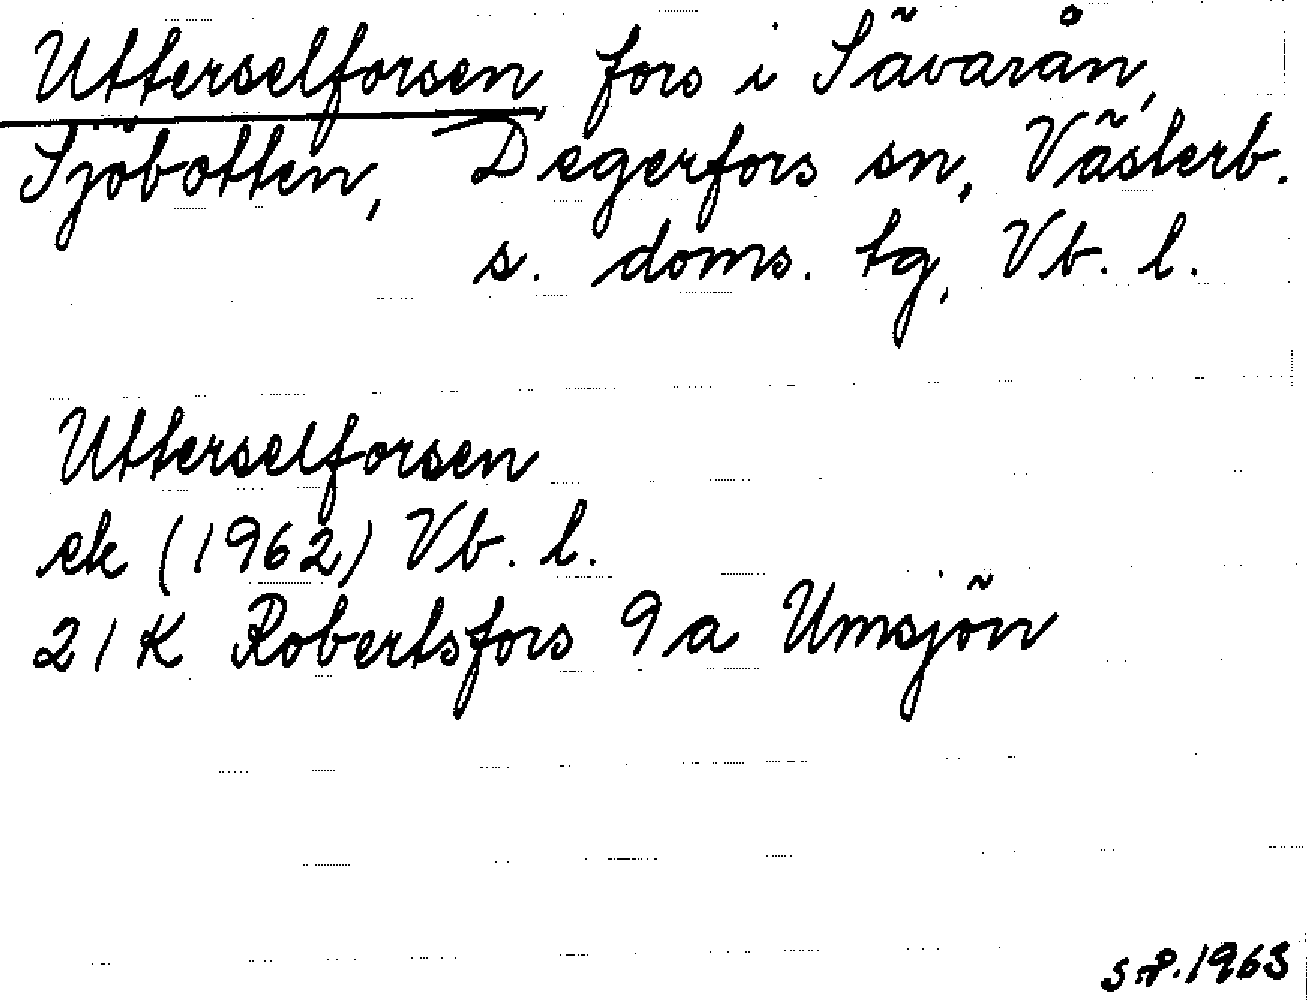 Utterselforsen, fors i Sävarån,
Sjöbotten, Degerfors sn, Västerb.
s. doms. tg, Vb. l.
Utterselforsen
ek (1962) Vb. l.
21 K Robertsfors 9a Umsjön
1963